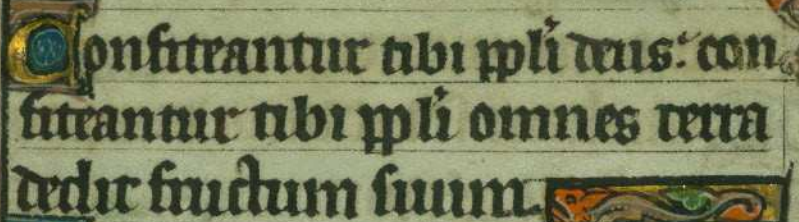 Confiteantur tibi ppli deus: con
fiteantur tibi ppli omnes terra
dedit fructum suum.